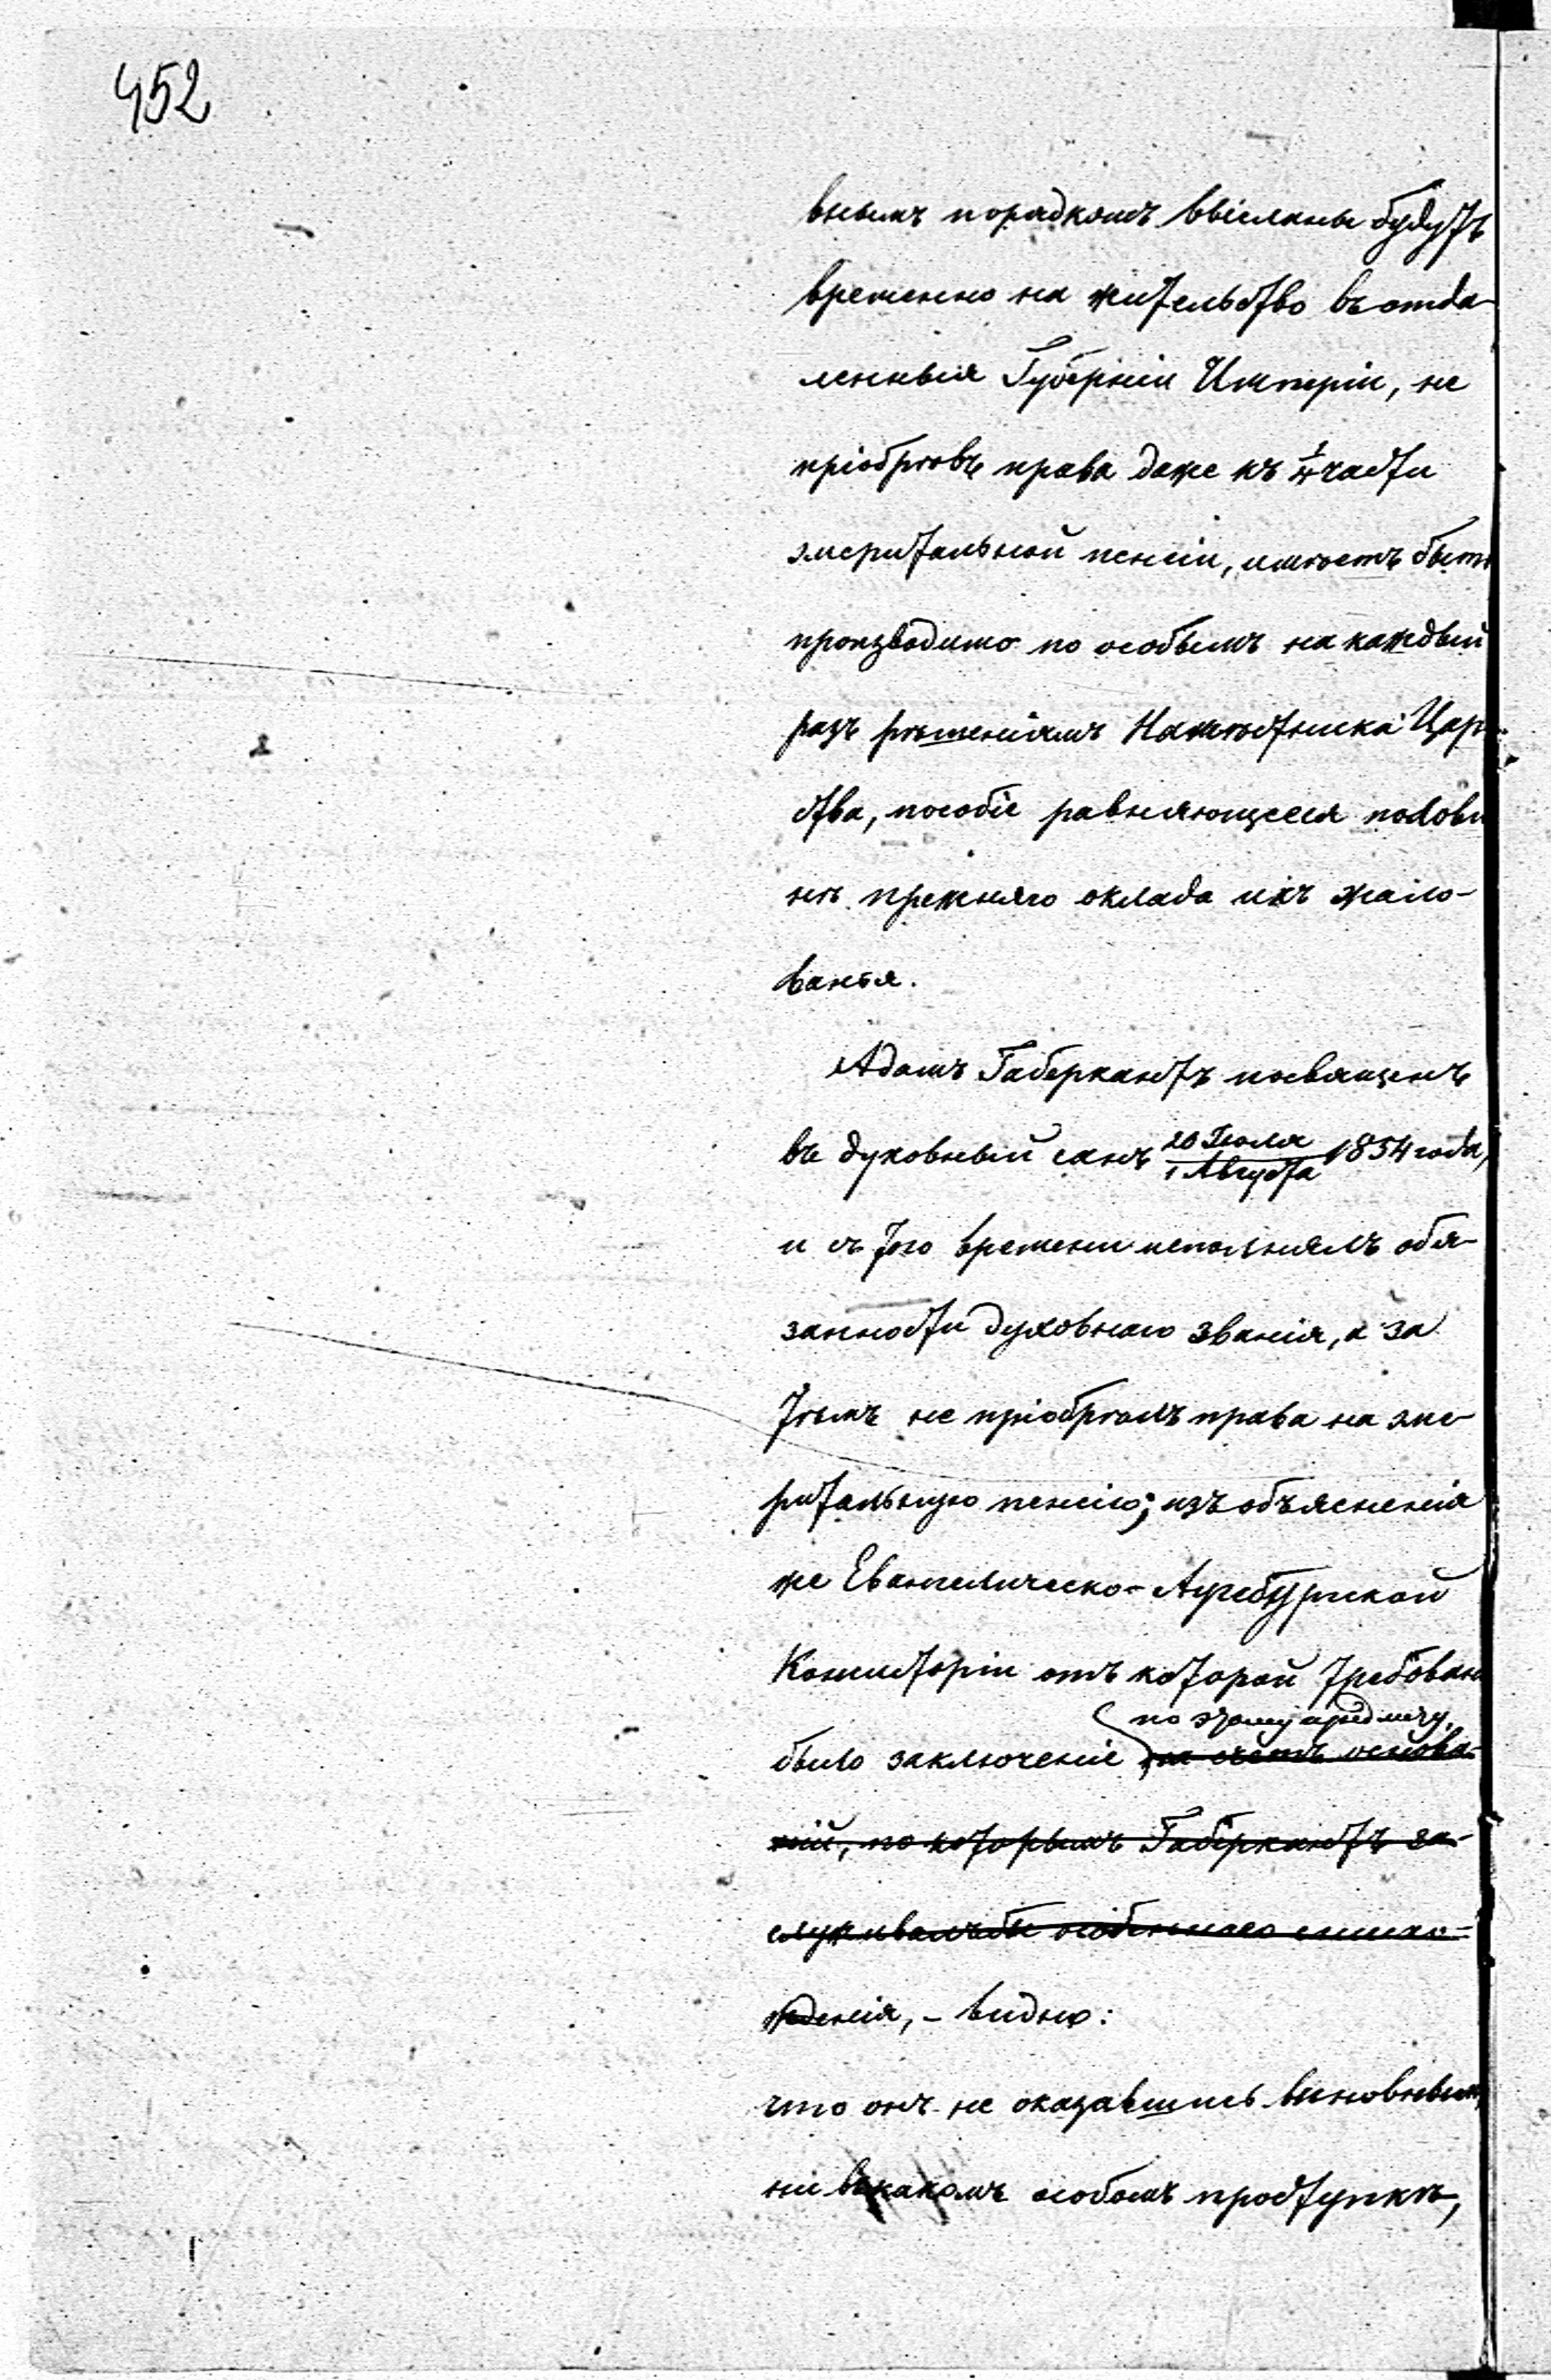 452
внымъ порядкомъ высланы будутъ
временно на жительство въ отда-
ленныя Губерніи Имперіи, не
пріобрѣвъ права даже къ 1/4 части
эмеритальной пенсіи, имѣетъ быть
производимо по особымъ на каждый
разъ рѣшеніямъ Намѣстника Цар-
ства, пособіе равняющееся полови
нѣ прежняго оклада ихъ жало-
ванья.
Адамъ Габеркантъ посвященъ
въ духовный санъ 20 Іюля / 1 Августа 1854 года,
и съ того времени исполнялъ обя-
занности духовнаго званія, а за
тѣмъ не пріобрѣлъ права на эме-
ритальную пенсію; изъ объясненія
же Евангелическо-Аугсбургской
Консисторіи отъ которой требован
по этому предмету,
было заключеніе на счетъ основа-
ній, по которымъ Габеркантъ за-
служивалъ бы особеннаго снисхо-
жденія, - видно:
что онъ не оказавшись виновнымъ
ни въ какомъ особомъ проступкѣ,